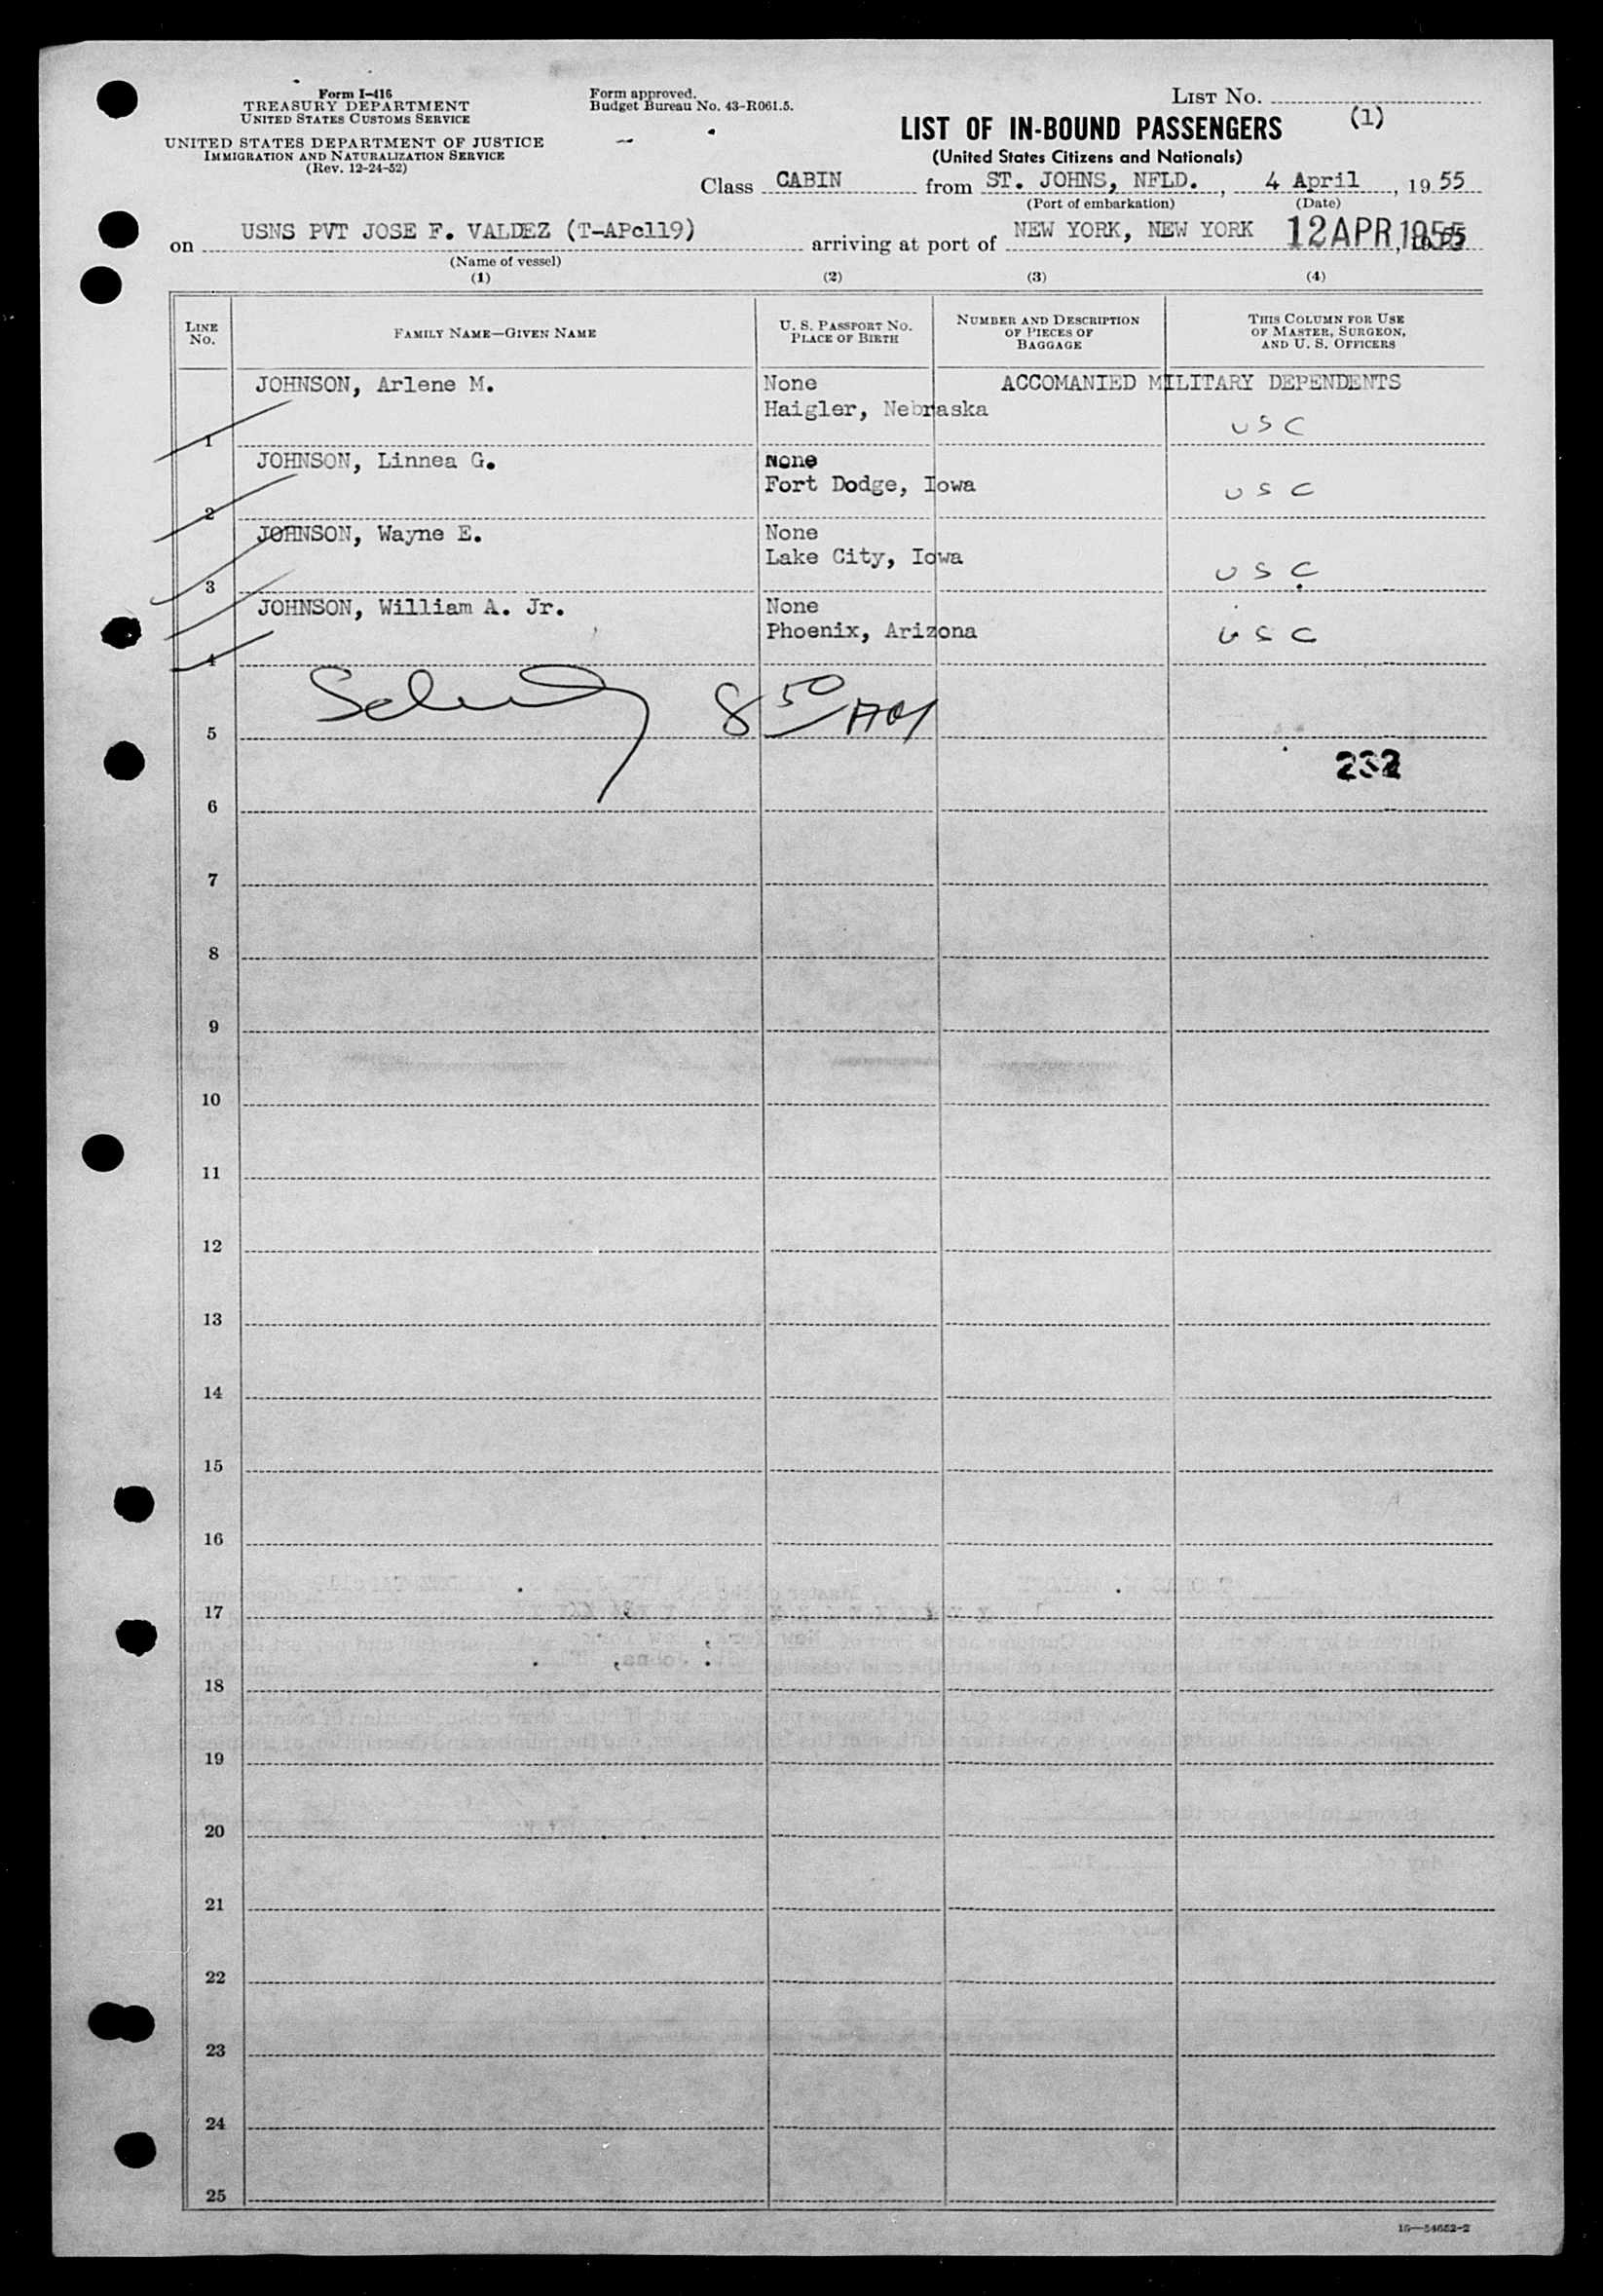 Form I-416
TREASURY DEPARTMENT
UNITED STATES CUSTOMS SERVICE
UNITED STATES DEPARTMENT OF JUSTICE
IMMIGRATION AND NATURALIZATION SERVICE
(Rev. 12-24-52)
Form approved.
Budget Bureau No. 43-R061.5.
LIST NO.
(1)
LIST OF IN-BOUND PASSENGERS
(United States Citizens and Nationals)
Class CABIN from ST. JOHNS, NFLD., 4 April, 19 55
(Port of embarkation) (Date)
on USNS PVT JOSE F. VALDEZ (T-APc119) arriving at port of NEW YORK, NEW YORK 12 APR 1955
(Name of vessel)
(1) (2) (3) (4)
LINE NO. FAMILY NAME—GIVEN NAME U. S. PASSPORT NO. PLACE OF BIRTH NUMBER AND DESCRIPTION OF PIECES OF BAGGAGE THIS COLUMN FOR USE OF MASTER, SURGEON, AND U. S. OFFICERS
JOHNSON, Arlene M. None ACCOMANIED MILITARY DEPENDENTS
Haigler, Nebraska
1 USC
JOHNSON, Linnea G. None
Fort Dodge, Iowa
2 USC
JOHNSON, Wayne E. None
Lake City, Iowa
3 USC
JOHNSON, William A. Jr. None
Phoenix, Arizona USC
4
8 50
5
232
6
7
8
9
10
11
12
13
14
15
16
17
18
19
20
21
22
23
24
25
16—54652-2